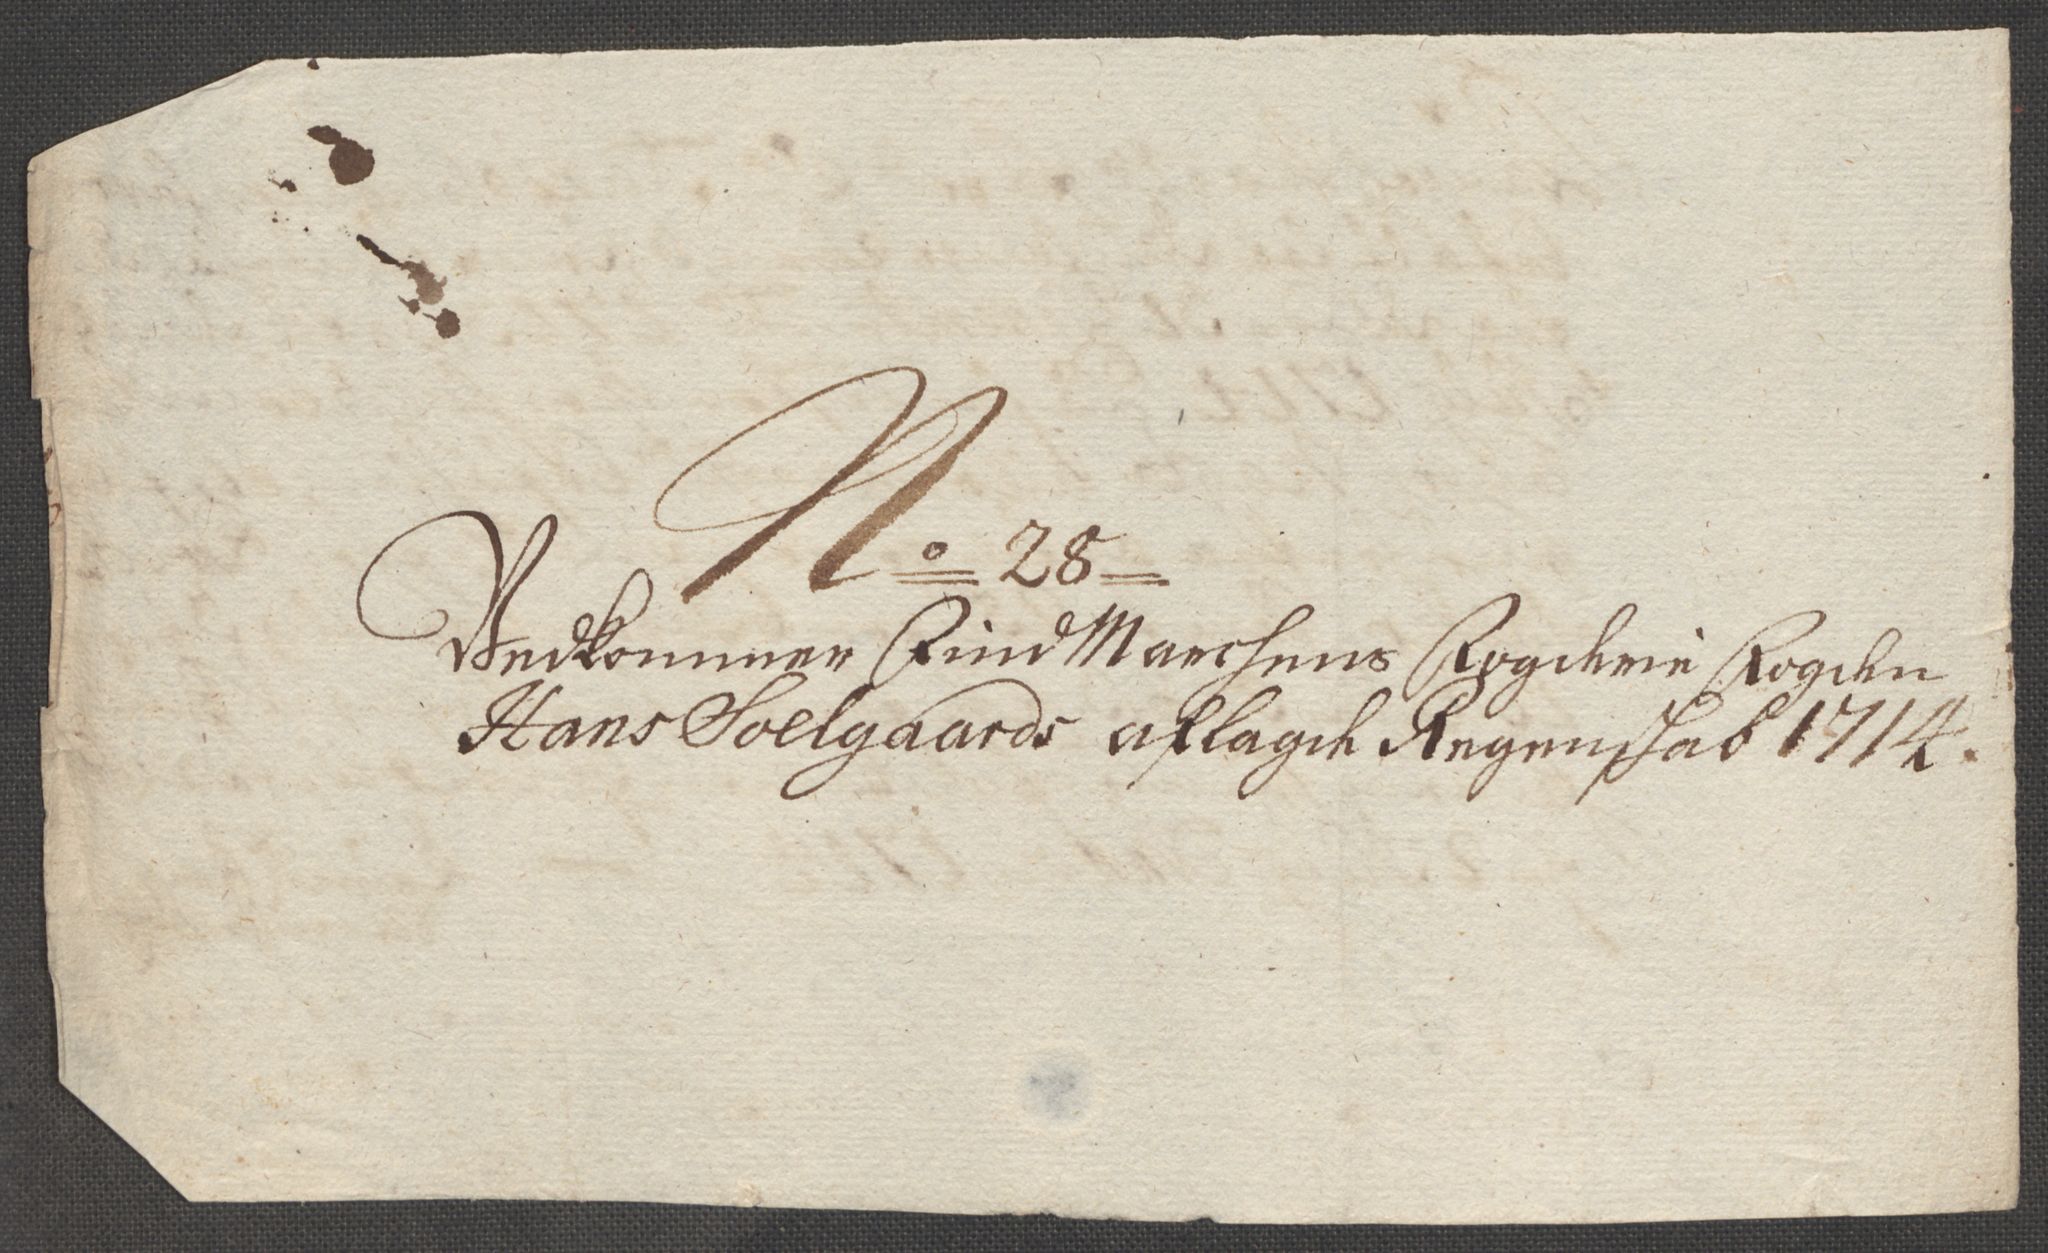 No 28
Vedkommer FindMarchens Fogderie Fogden
Hans Soelgaards aflagde Regenschab 1714.